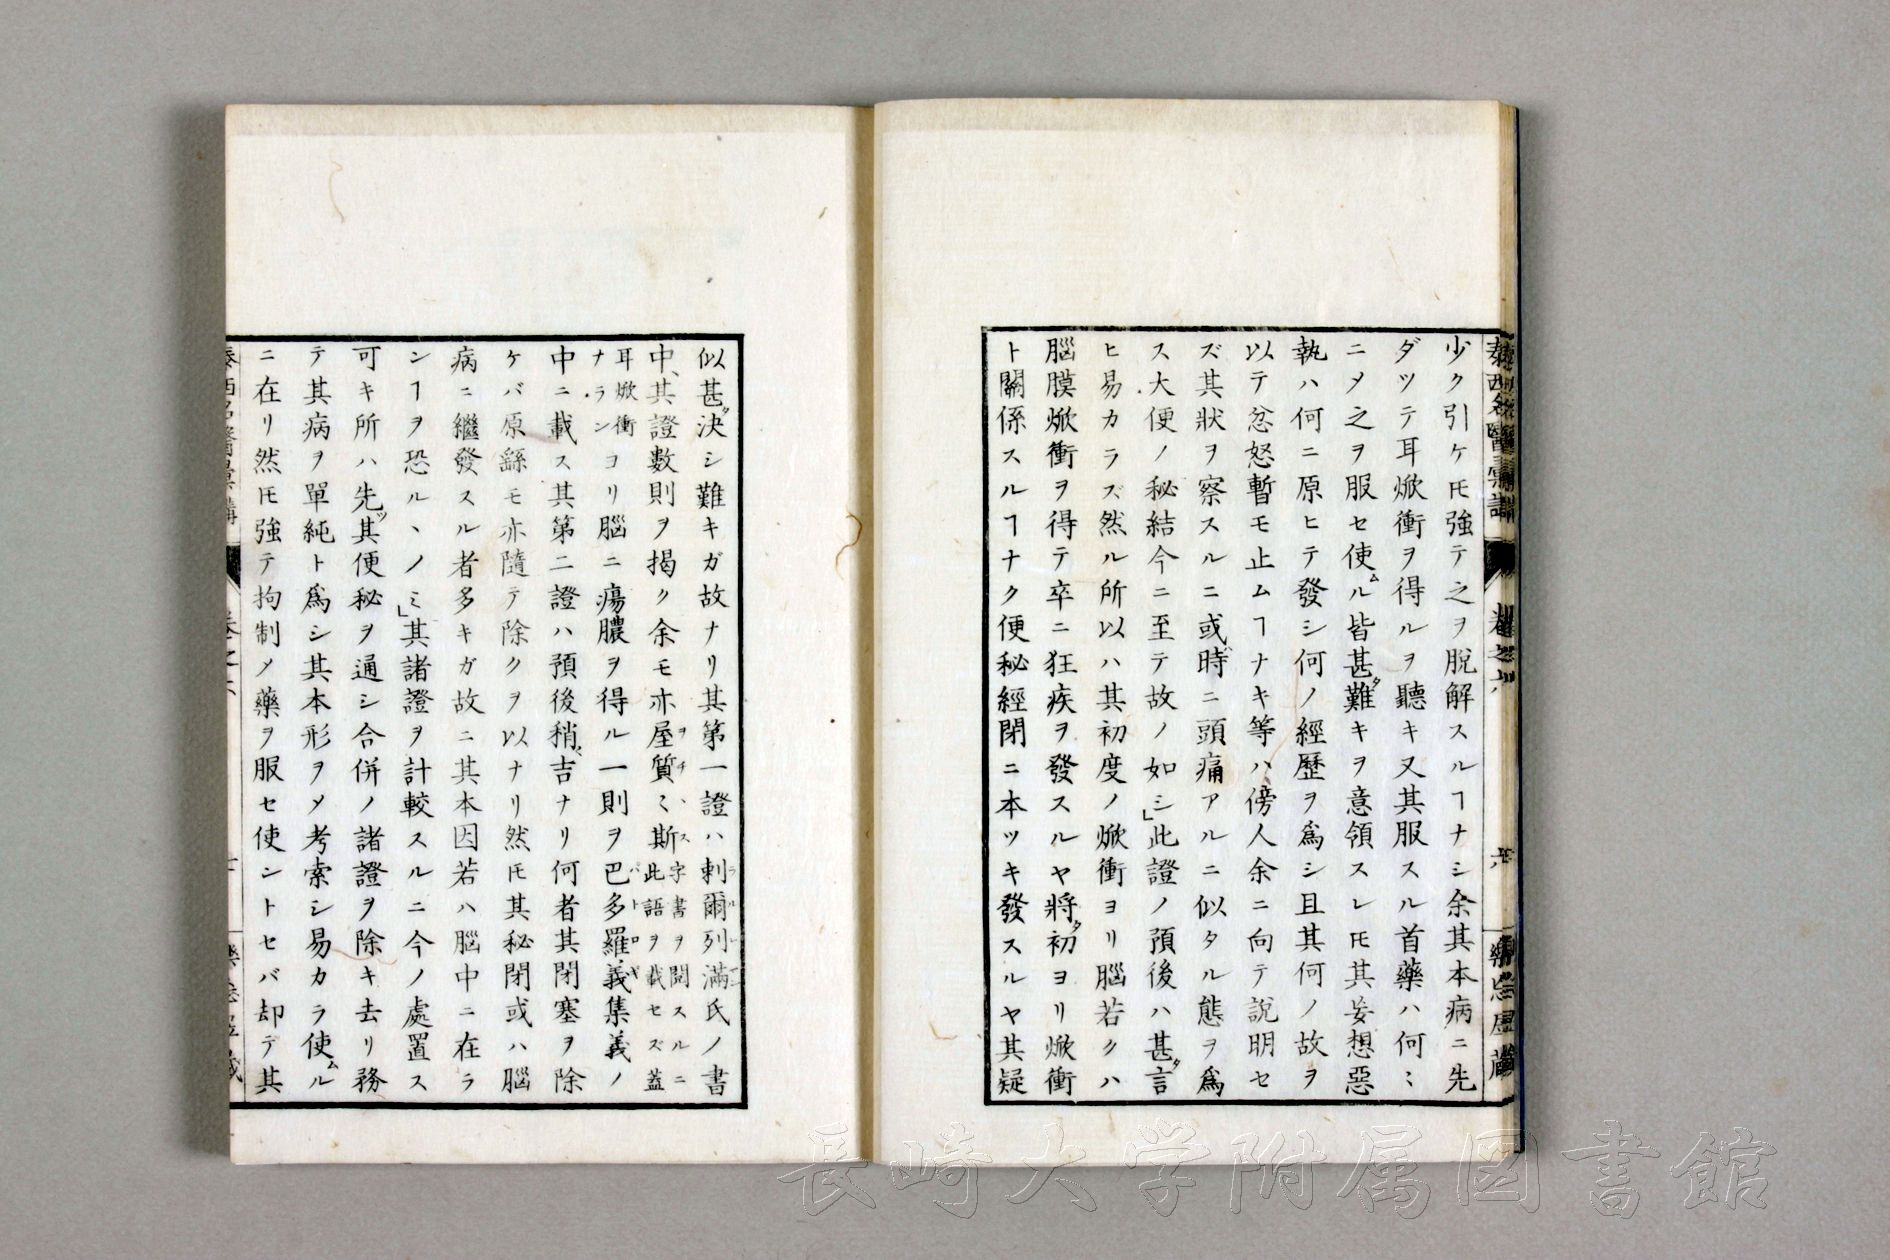 少ク引ケ𪜈強テ之ヲ脫解スルヿナシ余其本病ニ先
ダツテ耳焮衝ヲ得ルヲ聽キ又其服スル首藥ハ何ミ
ニメ之ヲ服セ使ムル皆甚ダ難キヲ意領スレ𪜈其妄想惡
執ハ何ニ原ヒテ發シ何ノ經歷ヲ爲シ且其何ノ故ヲ
以テ忿怒暫モ止ムヿナキ等ハ傍人余ニ向テ說明セ
ズ其狀ヲ察スルニ或ハ時ニ頭痛アルニ似タル態ヲ爲
ス大便ノ秘結今ニ至テ故ノ如シ」此證ノ預後ハ甚ダ言
ヒ易カラズ然ル所以ハ其初度ノ焮衝ヨリ腦若クハ
腦膜焮衝ヲ得テ卒ニ狂疾ヲ發スルヤ將タ初ヨリ焮衝
ト關係スルヿナク便秘經閉ニ本ツキ發スルヤ其疑
似甚ダ決シ難キガ故ナリ其第一證ハ剌爾列滿氏ノ書
中、其證數則ヲ揭ク余モ亦屋質ミ斯此語ヲ載セズ蓋字書ヲ閱スルニ
耳焮衝ナランヨリ腦ニ瘍膿ヲ得ル一則ヲ巴多羅義集義ノ
中ニ載ス其第二證ハ預後稍ヤ吉ナリ何者其閉塞ヲ除
ケバ原繇モ亦隨テ除クヲ以ナリ然𪜈其秘閉或ハ腦
病ニ繼發スル者多キガ故ニ其本因若ハ腦中ニ在ラ
ンヿヲ恐ル丶ノミ」其諸證ヲ計較スルニ今ノ處置ス
可キ所ハ先ツ其便秘ヲ通シ合併ノ諸證ヲ除キ去リ務
テ其病ヲ單純ト爲シ其本形ヲメ考索シ易カラ使ムル
ニ在リ然𪜈強テ拘制ノ藥ヲ服セ使ントセバ却テ其
長崎大学附属図書館